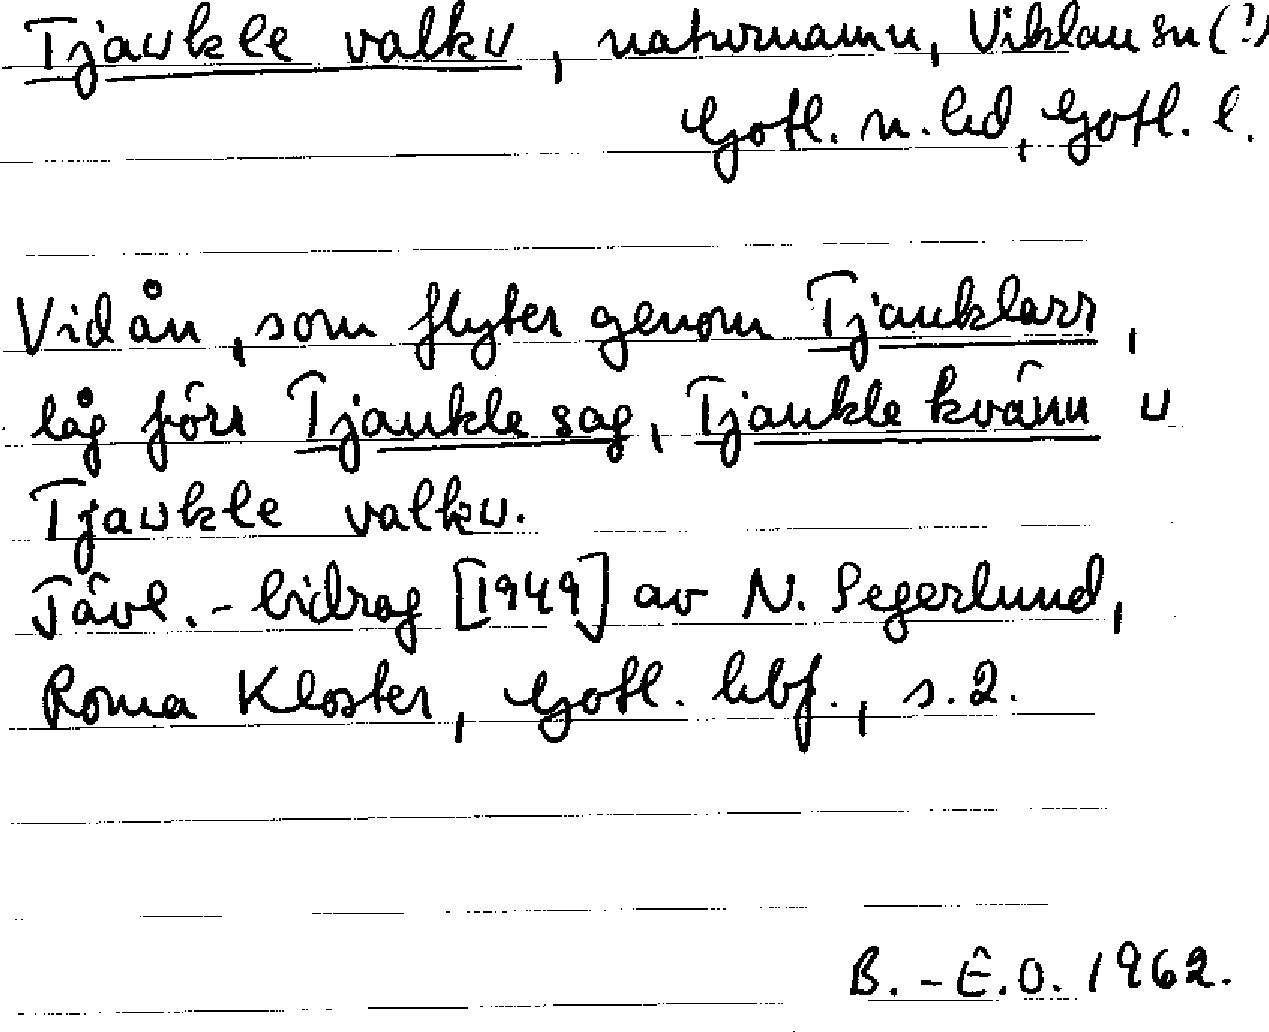 Tjaukle valku, naturnamn, Viklau sn (?)
Gotl. n. hd, Gotl. l.
Vid ån, som flyter genom Tjauklarr,
låg förr Tjaukle sag, Tjaukle kvänn u
Tjaukle valku.
Tävl.-bidrag [1949] av N. Segerlund,
Roma Kloster, Gotl. hbf., s. 2.
B.-E.O. 1962.